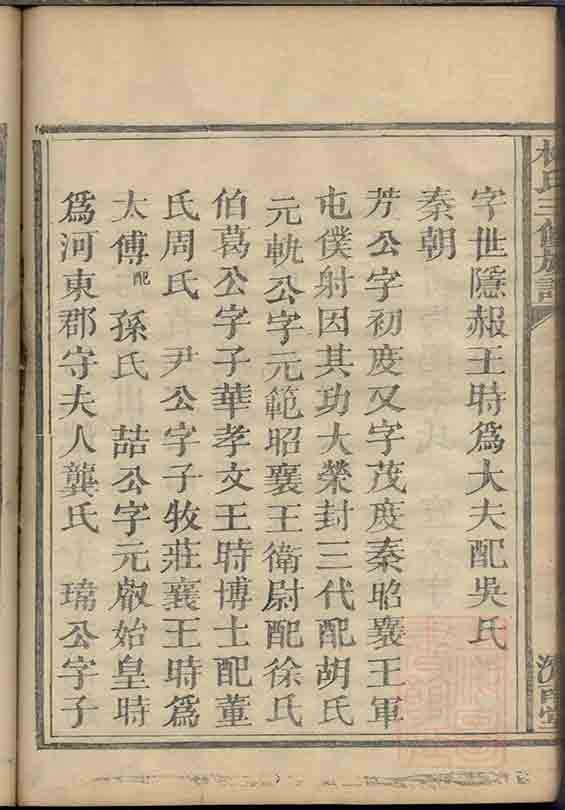 氏三修族譜
字世隱赧王時爲大夫配吳氏
秦朝
芳公字初度又字茂度秦昭襄王軍
屯僕射因其功大榮封三代配胡氏
元軌公字元範昭襄王衛尉配徐氏
伯葛公字子華孝文王時博士配董
氏周氏 尹公字子牧莊襄王時爲
太傅配孫氏 喆公字元叡始皇時
爲河東郡守夫人龔氏 瑞公字子